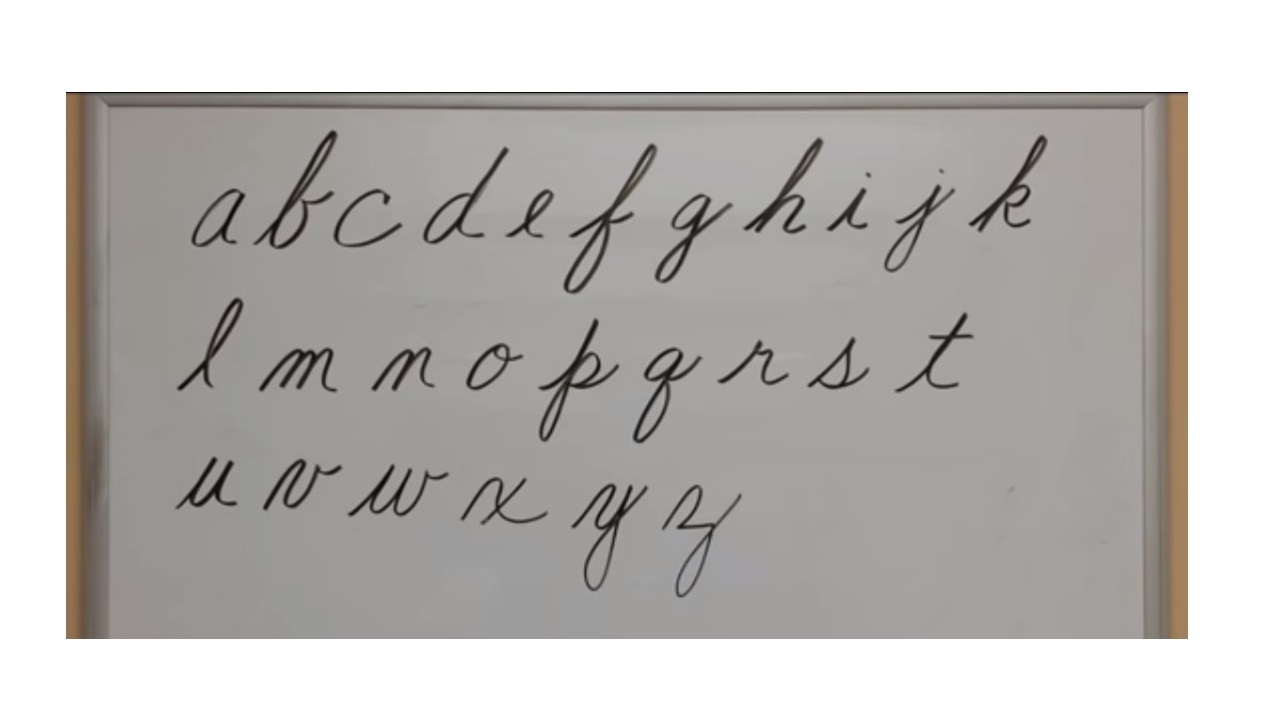 a b c d e f g h i j k
l m n o p q r s t
u v w x y z